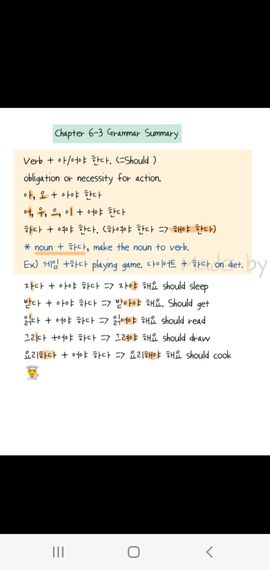 Chapter 6-3 Grammar Summary
Verb + 아/어야 한다. (=Should )
obligation or necessity for action.
아, 오 + 아야 한다
어, 우, 으, 이 + 어야 한다
하다 + 여야 한다. (하여야 한다 => 해야 한다)
* noun + 하다, make the noun to verb.
Ex) 게임 +하다 playing game. 다이어트 + 하다 on diet.
자다 + 아야 하다 => 자야 해요 should sleep
받다 + 아야 하다 => 받아야 해요. Should get
읽다 + 어야 하다 => 읽어야 해요 should read
그리다 +어야 하다 => 그려야 해요 should draw
요리하다 + 여야 하다 => 요리해야 해요 should cook